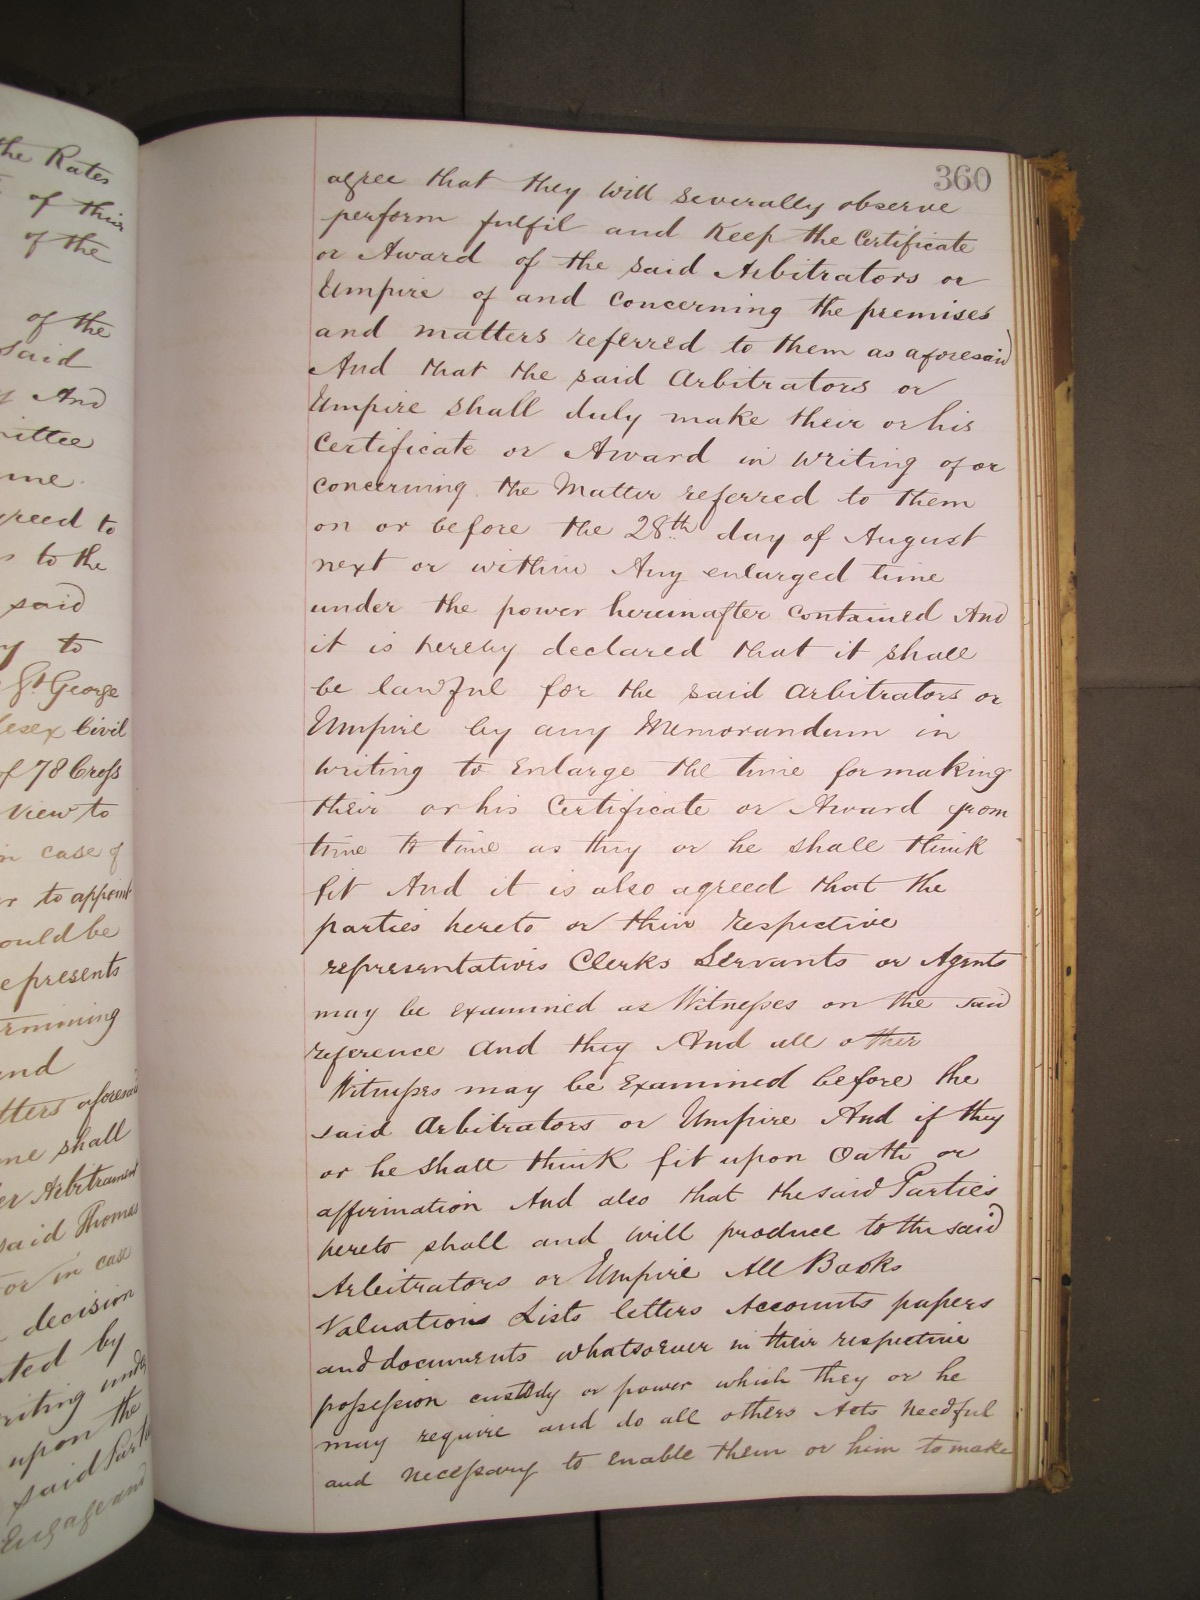 the Rates
of their
of the
of the
said
And
ittee
me.
greed to
to the
said
to
St George
lesex Civil
of 78 Cross
View to
in case of
to appoint
ould be
epresents
rmining
and
tters aforesaid
me shall
er Arbitrament
said Thomas
or in case
decision
ted by
riting under
upon the
said Parties
Engage and
360
agree that they will severally observe
perform fulfil and Keep the Certificate
or Award of the said Arbitrators or
Umpire of and concerning the premises
and matters referred to them as aforesaid
And that the said Arbitrators or
Umpire shall duly make their or his
Certificate or Award in writing of or
concerning the Matter referred to them
on or before the 28th day of August
next or within Any enlarged time
under the power hereinafter contained And
it is hereby declared that it shall
be lawful for the said arbitrators or
Umpire by any Memorandum in
writing to Enlarge the time for making
their or his Certificate or Award from
time to time as they or he shall think
fit And it is also agreed that the
parties hereto or their respective
representatives Clerks Servants or Agents
may be examined as Witnesses on the said
reference and they And all other
Witnesses may be Examined before the
said Arbitrators or Umpire And if they
or he shall think fit upon Oath or
affirmation And also that the said Parties
hereto shall and will produce to the said
Arbitrators or Umpire All Books
Valuations Lists letters Accounts papers
and documents whatsoever in their respective
possession custody or power which they or he
may require and do all others Acts needful
and necessary to enable them or him to make